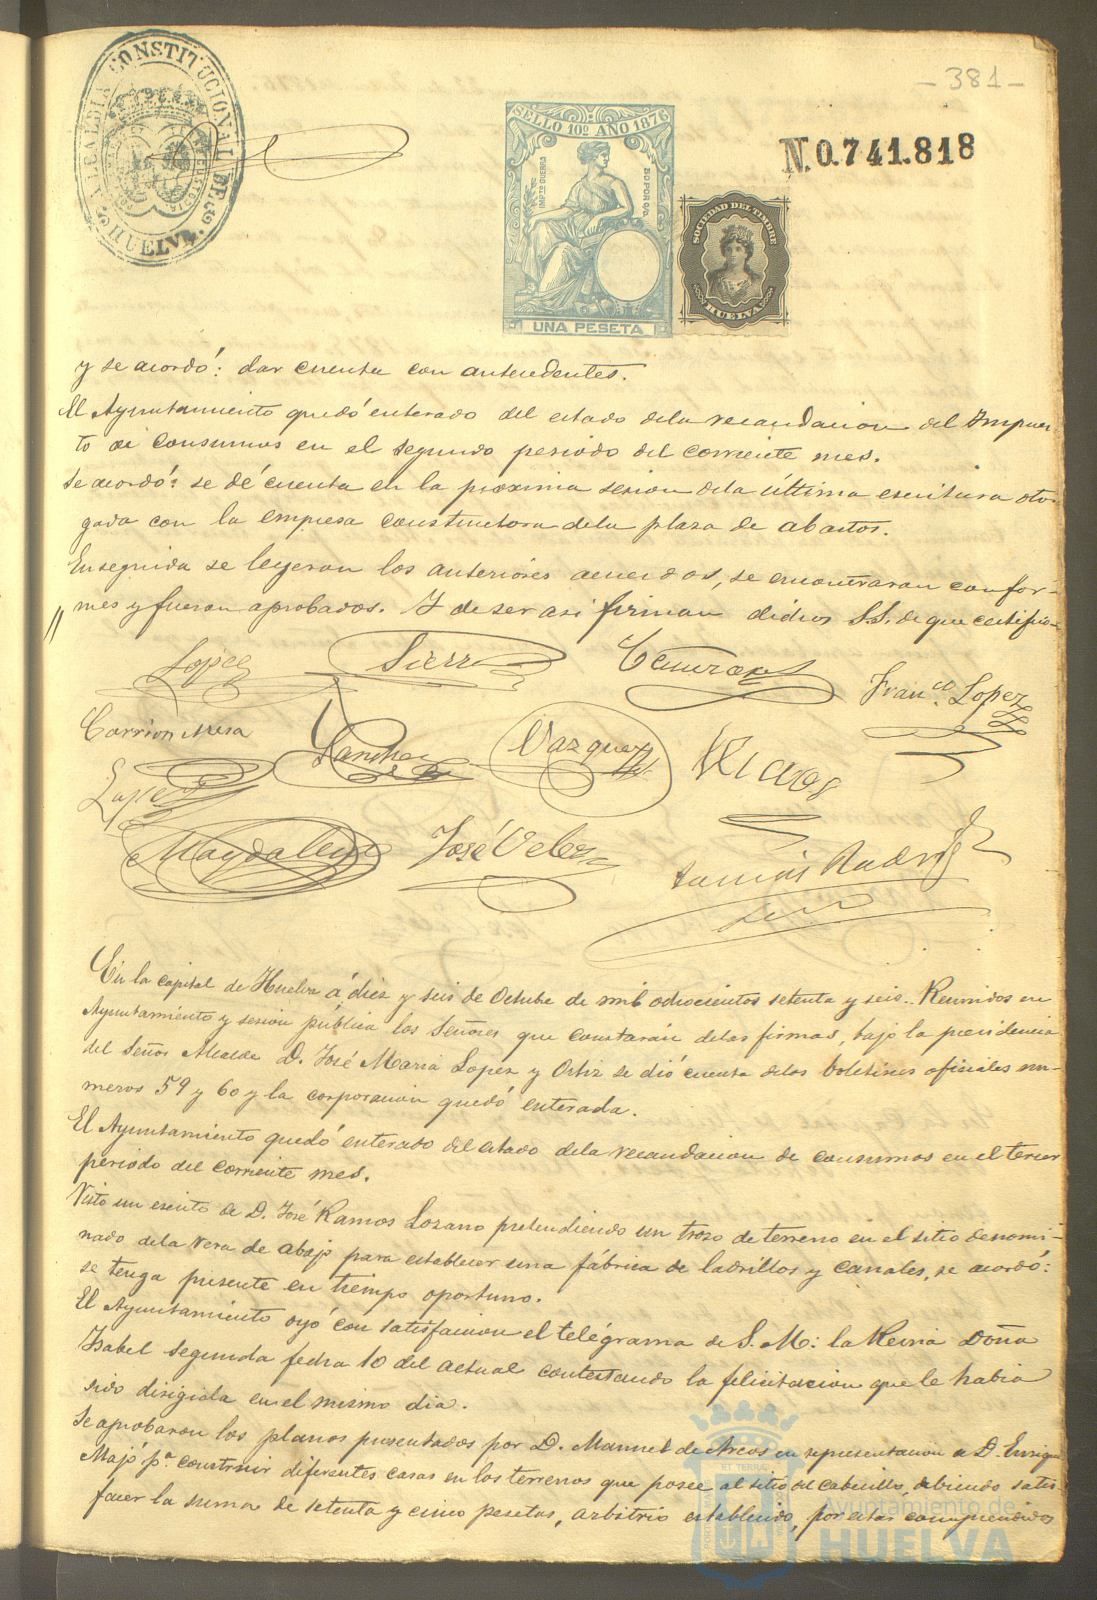 - 381 -
ALCALDIA CONSTITUCIONAL DE
HUELVA
SELLO 10º AÑO 1876
IMPTO GUERRA
50 POR 0/0
UNA PESETA
N.0.741.818
SOCIEDAD DEL TIMBRE
HUELVA
y se acordó: dar cuenta con antecedentes.
El Ayuntamiento quedó enterado del estado dela recaudacion del Impues-
to de consumos en el segundo periodo del corriente mes.
Se acordó: se dé cuenta en la proxima sesion dela última escritura otor-
gada con la empresa constructora dela plaza de abastos.
Enseguida se leyeron los anteriores acuerdos, se encontraron confor-
mes y fueron aprobados. Y de ser asi firman dichos S.S. de que certifico
Lopez
Sierra
Franco. Lopez
Carrion Mesa
Sanchez
Vazquez
Lopez
Magdalena
José Velez
Tomás Rodrig
En la capital de Huelva á diez y seis de Octube de mil ochocientos setenta y seis. Reunidos en
Ayuntamiento y sesión pública los Señores que constarán delas firmas, bajo la presidencia
del Señor Alcalde D. José Maria Lopez y Ortiz se dió cuenta delos boletines oficiales nu-
meros 59 y 60 y la corporacion quedó enterada.
El Ayuntamiento quedó enterado del estado dela recaudacion de consumos en el tercer
periodo del corriente mes.
Visto un escrito de D. José Ramos Lozano pretendiendo un trozo de terreno en el sitio denomi-
nado dela Vera de abajo para establecer una fábrica de ladrillos y canales, se acordó:
se tenga presente en tiempo oportuno.
El Ayuntamiento oyó con satisfacion el telégrama de S. M: la Reina Doña
Isabel Segunda fecha 10 del actual contestando la felicitacion que le habia
sido dirigida en el mismo dia.
Se aprobaron los planos presentados por D. Manuel de Arcos en representacion de D. Enrique
Majó pa. construir diferentes casas en los terrenos que posee al sitio del Cabecillo, debiendo satis-
facer la suma de setenta y cinco pesetas, arbitrio establecido, por estar comprendidos
ET TERRAE
Ayuntamiento de
HUELVA